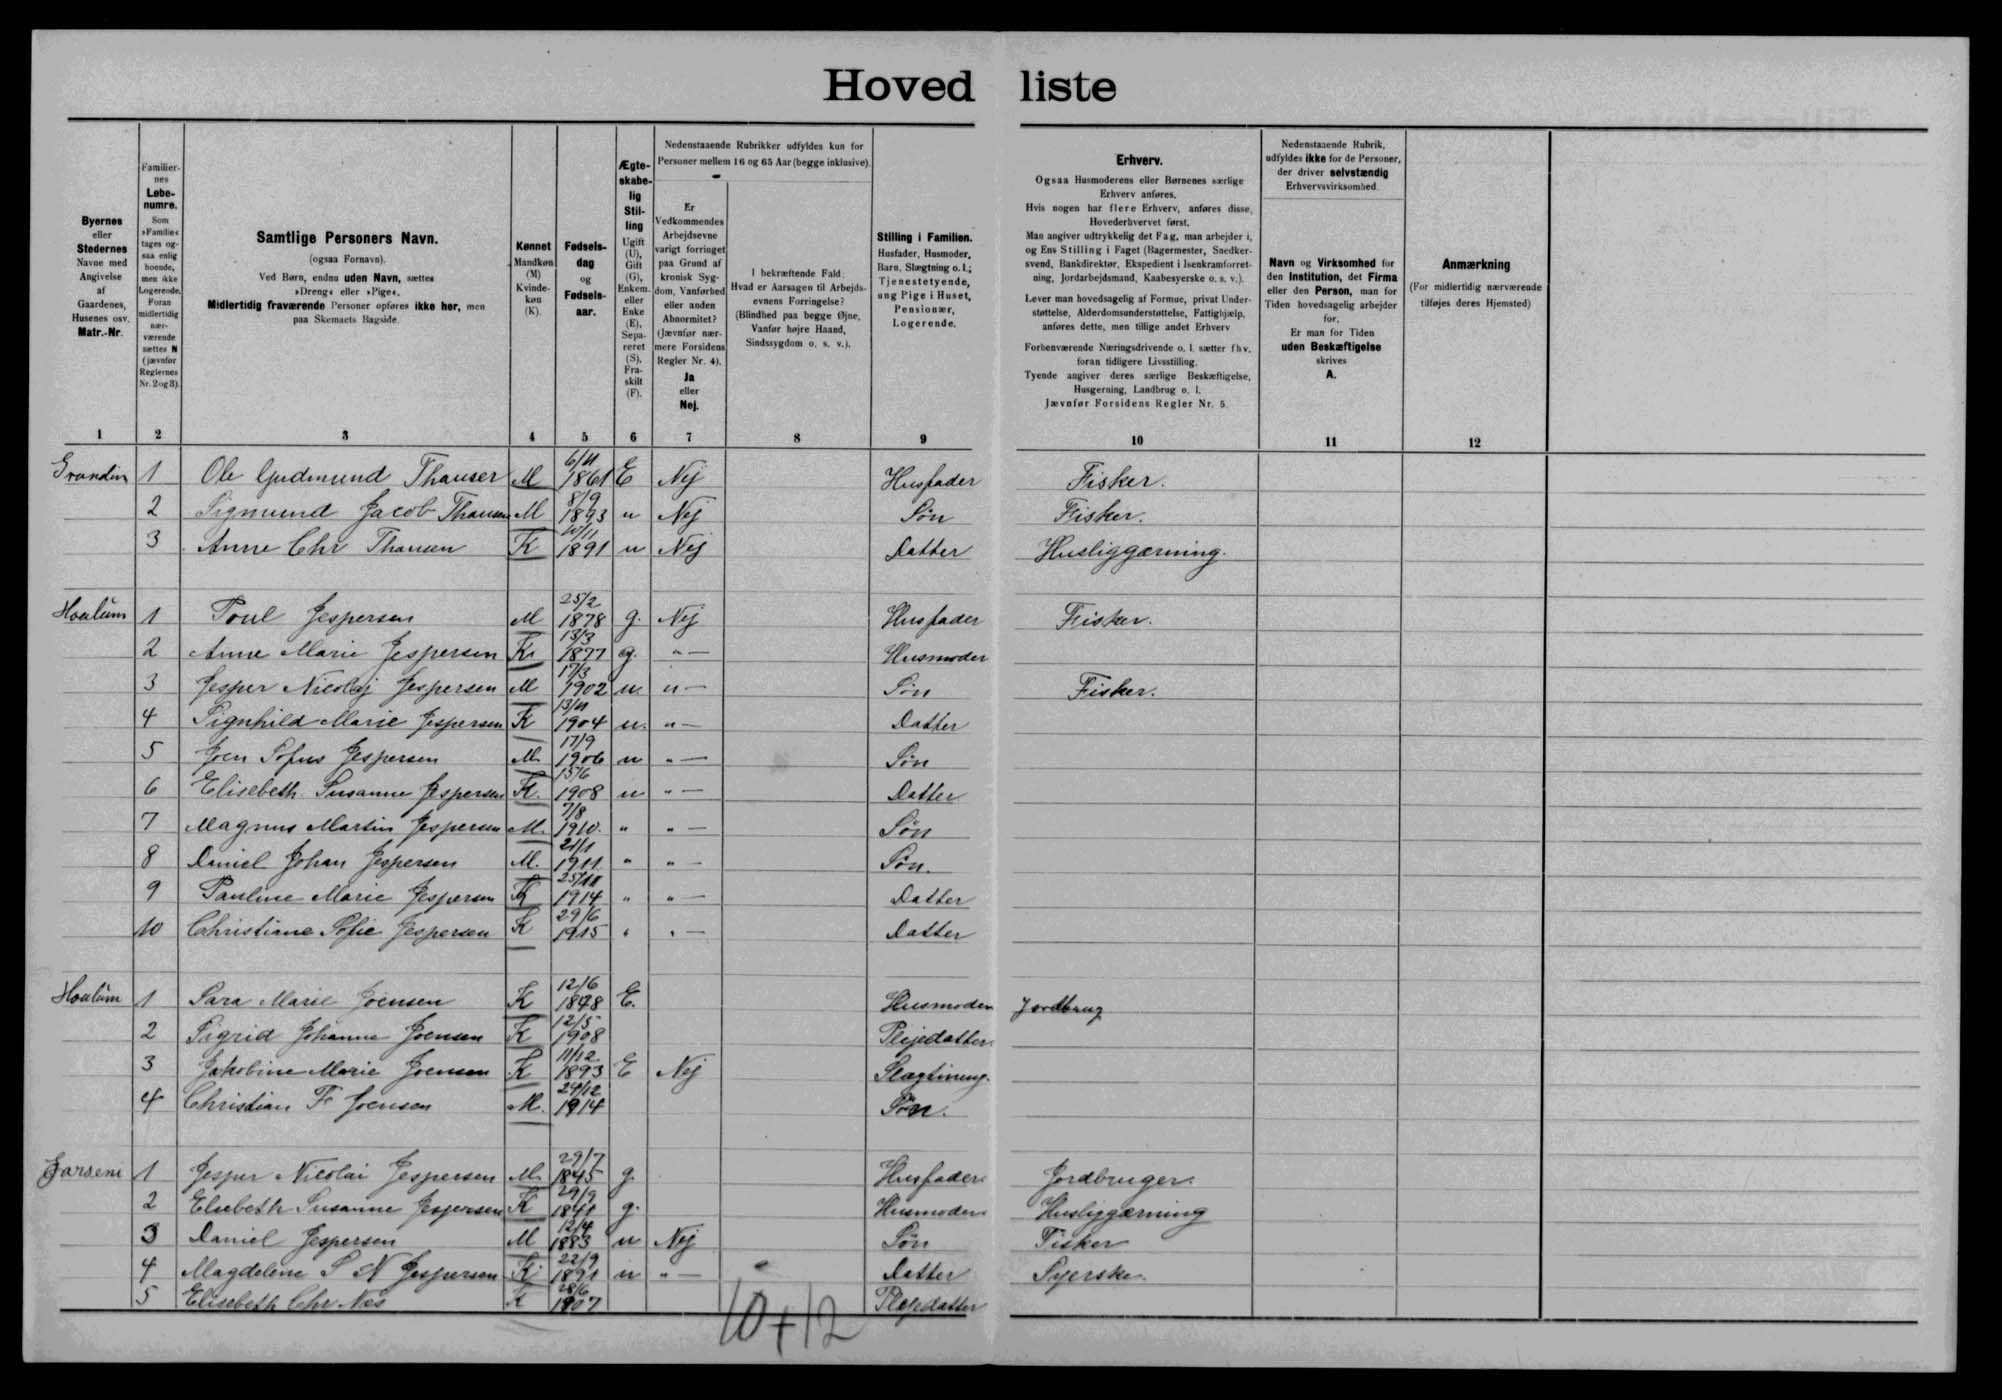 Hovedliste
Byernes eller Stedernes Navne med Angivelse af Gaardenes, Husenes osv. Matr.-Nr.
Familiernes Løbenumre. Som »Familie« tages ogsaa enlig boende, men ikke Logerende. Foran midlertidig nærværende sættes N (jævnfør Reglernes Nr. 2 og 3).
Samtlige Personers Navn.
(ogsaa Fornavn).
Ved Børn, endnu uden Navn, sættes
»Dreng« eller »Pige«.
Midlertidig fraværende Personer opføres ikke her, men
paa Skemaets Bagside.
Kønnet Mandkøn (M) Kvindekøn (K).
Fødselsdag og Fødselsaar.
Ægteskabelig Stilling Ugift (U), Gift (G), Enkem. eller Enke (E), Separeret (S), Fraskilt (F).
Nedenstaaende Rubrikker udfyldes kun for
Personer mellem 16 og 65 Aar (begge inklusive).
Er Vedkommendes Arbejdsevne varigt forringet paa Grund af kronisk Sygdom, Vanførhed eller anden Abnormitet? (Jævnfør nærmere Forsidens Regler Nr. 4). Ja eller Nej.
I bekræftende Fald: Hvad er Aarsagen til Arbejdsevnens Forringelse? (Blindhed paa begge Øjne, Vanfør højre Haand, Sindssygdom o. s. v.).
Stilling i Familien. Husfader, Husmoder, Barn, Slægtning o. l.; Tjenestetyende, ung Pige i Huset, Pensionær, Logerende.
Erhverv.
Ogsaa Husmoderens eller Børnenes særlige
Erhverv anføres.
Hvis nogen har flere Erhverv, anføres disse,
Hovederhvervet først.
Man angiver udtrykkelig det Fag, man arbejder i,
og Ens Stilling i Faget (Bagermester, Snedkersvend,
Bankdirektør, Ekspedient i Isenkramforretning,
Jordarbejdsmand, Kaabesyerske o. s. v.).
Lever man hovedsagelig af Formue, privat Understøttelse,
Alderdomsunderstøttelse, Fattighjælp,
anføres dette, men tillige andet Erhverv
Forhenværende Næringsdrivende o. l. sætter fhv.
foran tidligere Livsstilling.
Tyende angiver deres særlige Beskæftigelse,
Husgerning, Landbrug o. l.
Jævnfør Forsidens Regler Nr. 5.
Nedenstaaende Rubrik, udfyldes ikke for de Personer, der driver selvstændig Erhvervsvirksomhed.
Navn og Virksomhed for den Institution, det Firma eller den Person, man for Tiden hovedsagelig arbejder for.
Er man for Tiden uden Beskæftigelse skrives A.
Anmærkning
(For midlertidig nærværende
tilføjes deres Hjemsted)
1 2 3 4 5 6 7 8 9 10 11 12
1 Ole Gudmund Thauser M 6/11 1861 E Nej Husfader Fisker.
2 Sigmund Jacob Thausen M 8/9 1893 u Nej Søn Fisker.
3 Anne Chr Thausen K 10/11 1891 u Nej Datter Husliggærning.
1 Poul Jespersen M 25/2 1878 g. Nej Husfader Fisker.
2 Anne Marie Jespersen K 13/3 1877 g. " — Husmoder
3 Jesper Nicolaj Jespersen M 17/3 1902 u. " — Søn Fisker.
4 Signhild Marie Jespersen K 13/11 1904 u. " — Datter
5 Joen Sofus Jespersen M. 17/9 1906 u " — Søn
6 Elisebeth Susanne Jespersen K. 15/6 1908 u " — Datter
7 Magnus Martin Jespersen M. 7/8 1910. " " — Søn
8 Daniel Johan Jespersen M. 21/1 1911 " " — Søn.
9 Pauline Marie Jespersen K 25/11 1914 " " — Datter
10 Christiane Sofie Jespersen K 29/6 1915 " " — Datter
1 Sara Marie Joensen K 12/6 1848 E. Husmoder Jordbrug
2 Sigrid Johanne Joensen K 12/5 1908 Plejedatter
3 Jakobine Marie Joensen K 11/12 1893 E Nej Slægtning.
4 Christian F Joensen M. 24/12 1914 Søn.
1 Jesper Nicolai Jespersen M. 29/7 1845 g. Husfader Jordbruger.
2 Elsebeth Susanne Jespersen K 29/9 1841 g. Husmoder Husliggærning
3 Daniel Jespersen M 12/4 1883 u Nej Søn Fisker
4 Magdelene S N Jespersen K. 22/9 1891 u " — Datter Syerske.
5 Elisebeth Chr Nes K 28/6 1907 Plejedatter
10+12